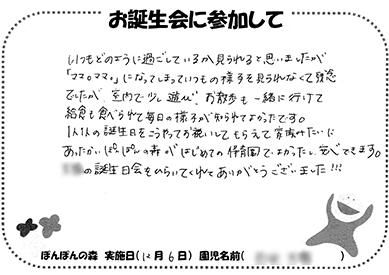 お誕生会に参加して
いつもどのように過ごしているか見られると思いましたが
「ママ。ママ。」になってしまっていつもの様子を見られなくて残念
でしたが、室内で少し遊び、お散歩も一緒に行けて
給食も食べられて毎日の様子が知られてよかったです。
1人1人の誕生日をこうやってお祝いしてもらえて家族みたいに
あったかいぽんぽんの森がはじめての保育園でよかったし、安心できます。
の誕生日会をひらいてくれてありがとうございました!!!
ぽんぽんの森 実施日(12月6日) 園児名前( )